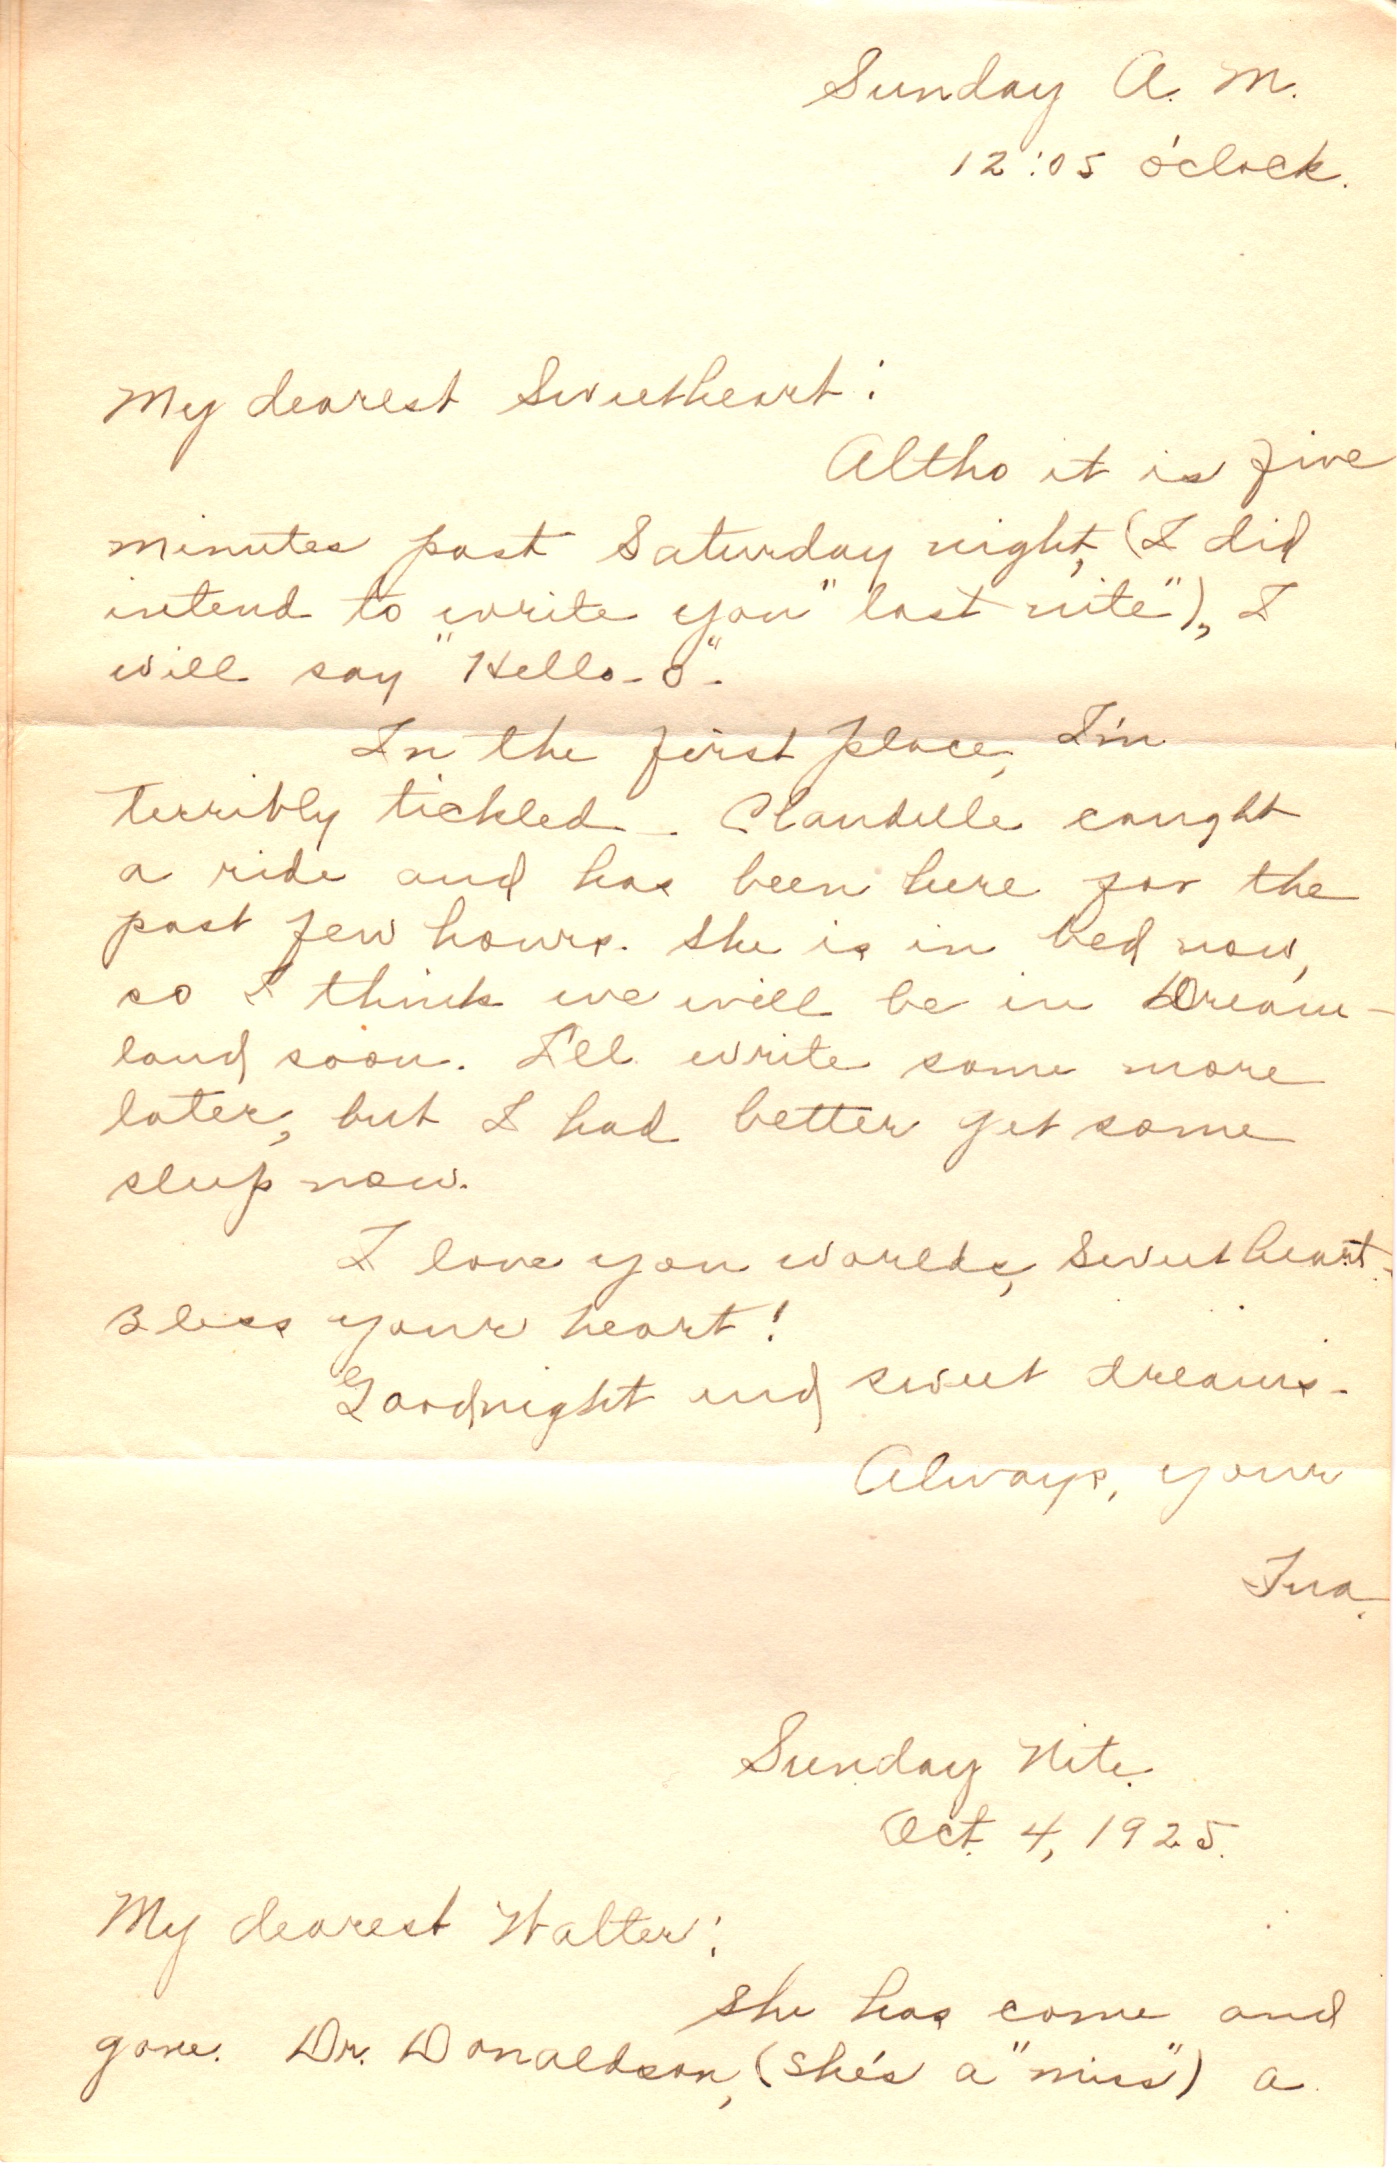 Sunday A. M.
12:05 o'clock.
My dearest Sweetheart:
Altho it is five
minutes past Saturday night, (I did
intend to write you "last nite"), I
will say "Hello-o".
In the first place, I'm
terribly tickled. Claudelle caught
a ride and has been here for the
past few hours. She is in bed now,
so I think we will be in Dream-
land soon. I'll write some more
later, but I had better get some
sleep now.
I love you worlds, Sweetheart.
Bless your heart!
Goodnight and sweet dreams.
Always, your
Sunday Nite.
Oct. 4, 1925.
My dearest Walter:
She has come and
gone. Dr. Donaldson, (she's a "miss") a